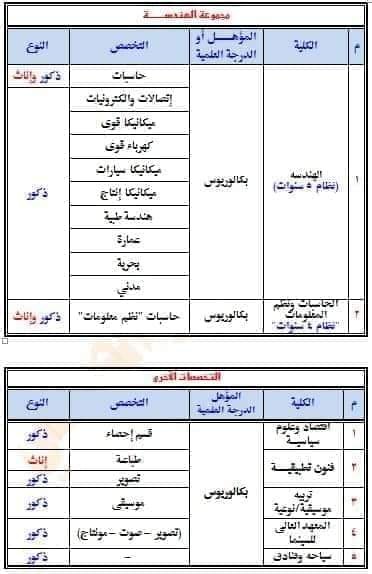 مجموعة الهندسة
م الكلية المؤهل أو الدرجة العلمية التخصص النوع
١ الهندسه (نظام ٥ سنوات) بكالوريوس حاسبات ذكور وإناث
إتصالات والكترونيات ذكور
ميكانيكا قوى
كهرباء قوى
ميكانيكا سيارات
ميكانيكا إنتاج
هندسة طبية
عمارة
بحرية
مدني
٢ الحاسبات ونظم المعلومات "نظام ٤ سنوات" بكالوريوس حاسبات "نظم معلومات" ذكور وإناث
التخصصات الأخرى
م الكلية المؤهل الدرجة العلمية التخصص النوع
١ اقتصاد وعلوم سياسية بكالوريوس قسم إحصاء ذكور
٢ فنون تطبيقية طباعة إناث
تصوير ذكور
٣ تربيه موسيقية/نوعية موسيقى ذكور
٤ المعهد العالى للسينما (تصوير – صوت – مونتاج) ذكور
٥ سياحه وفنادق – ذكور